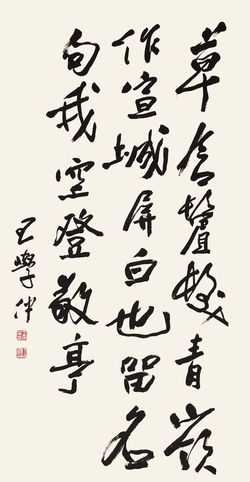 草含鬢髮青嶺
作宣城屏白也留名
句我空登敬亭
王學仲